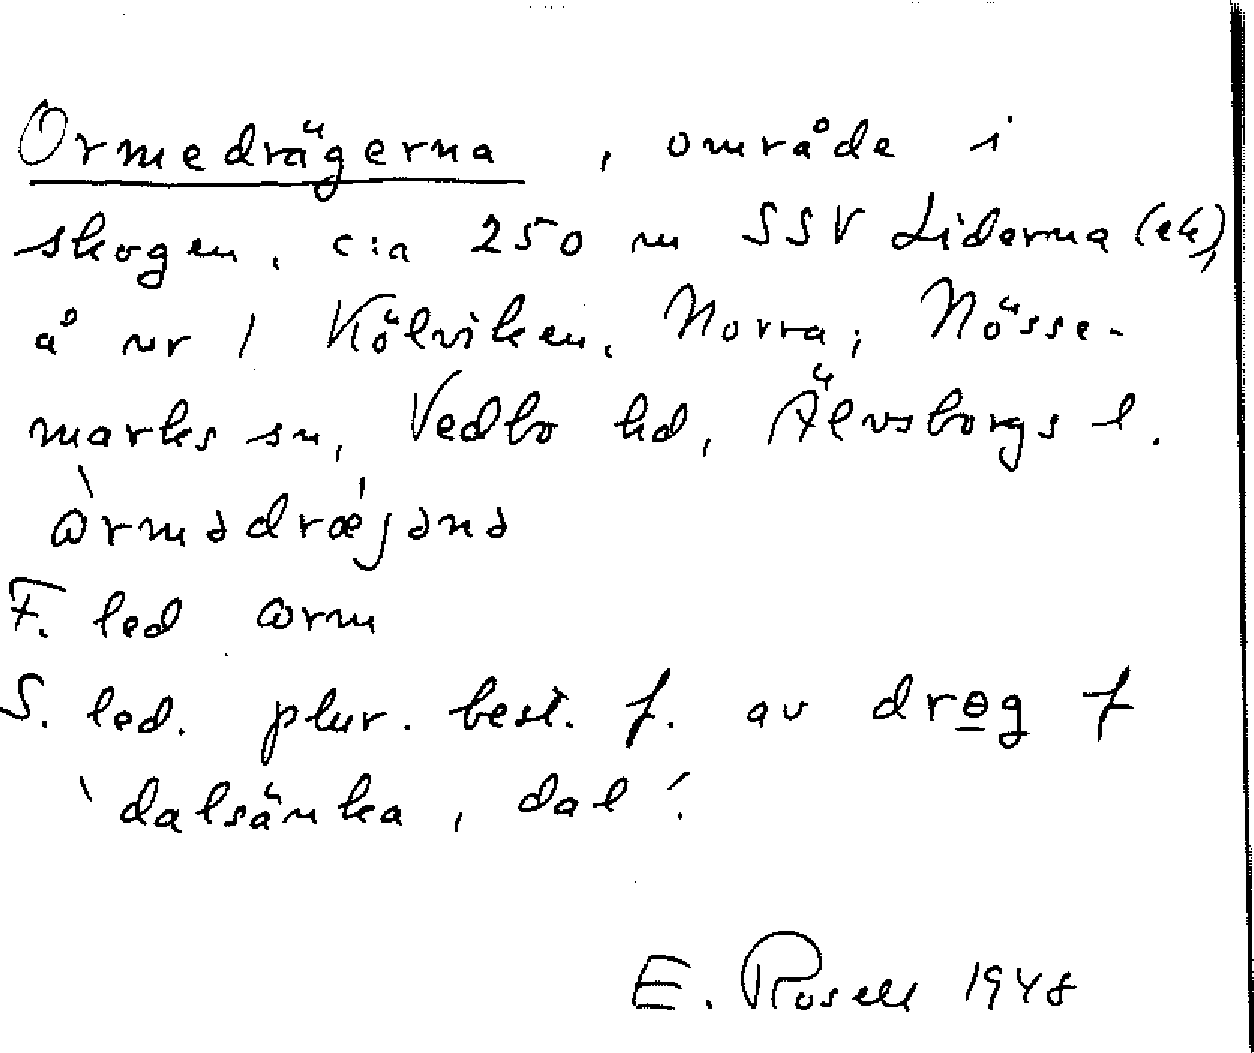 Ormedrägerna, område i
skogen, c:a 250 m SSV Liderna (ek),
å nr 1 Kölviken, Norra; Nösse-
marks sn, Vedbo hd, Älvsborgs l.
ɷ̀rmədrǽjəna
F. led ɷrm
S. led. plur. best. f. av drɵg f
'dalsänka, dal'.
E. Rosell 1948